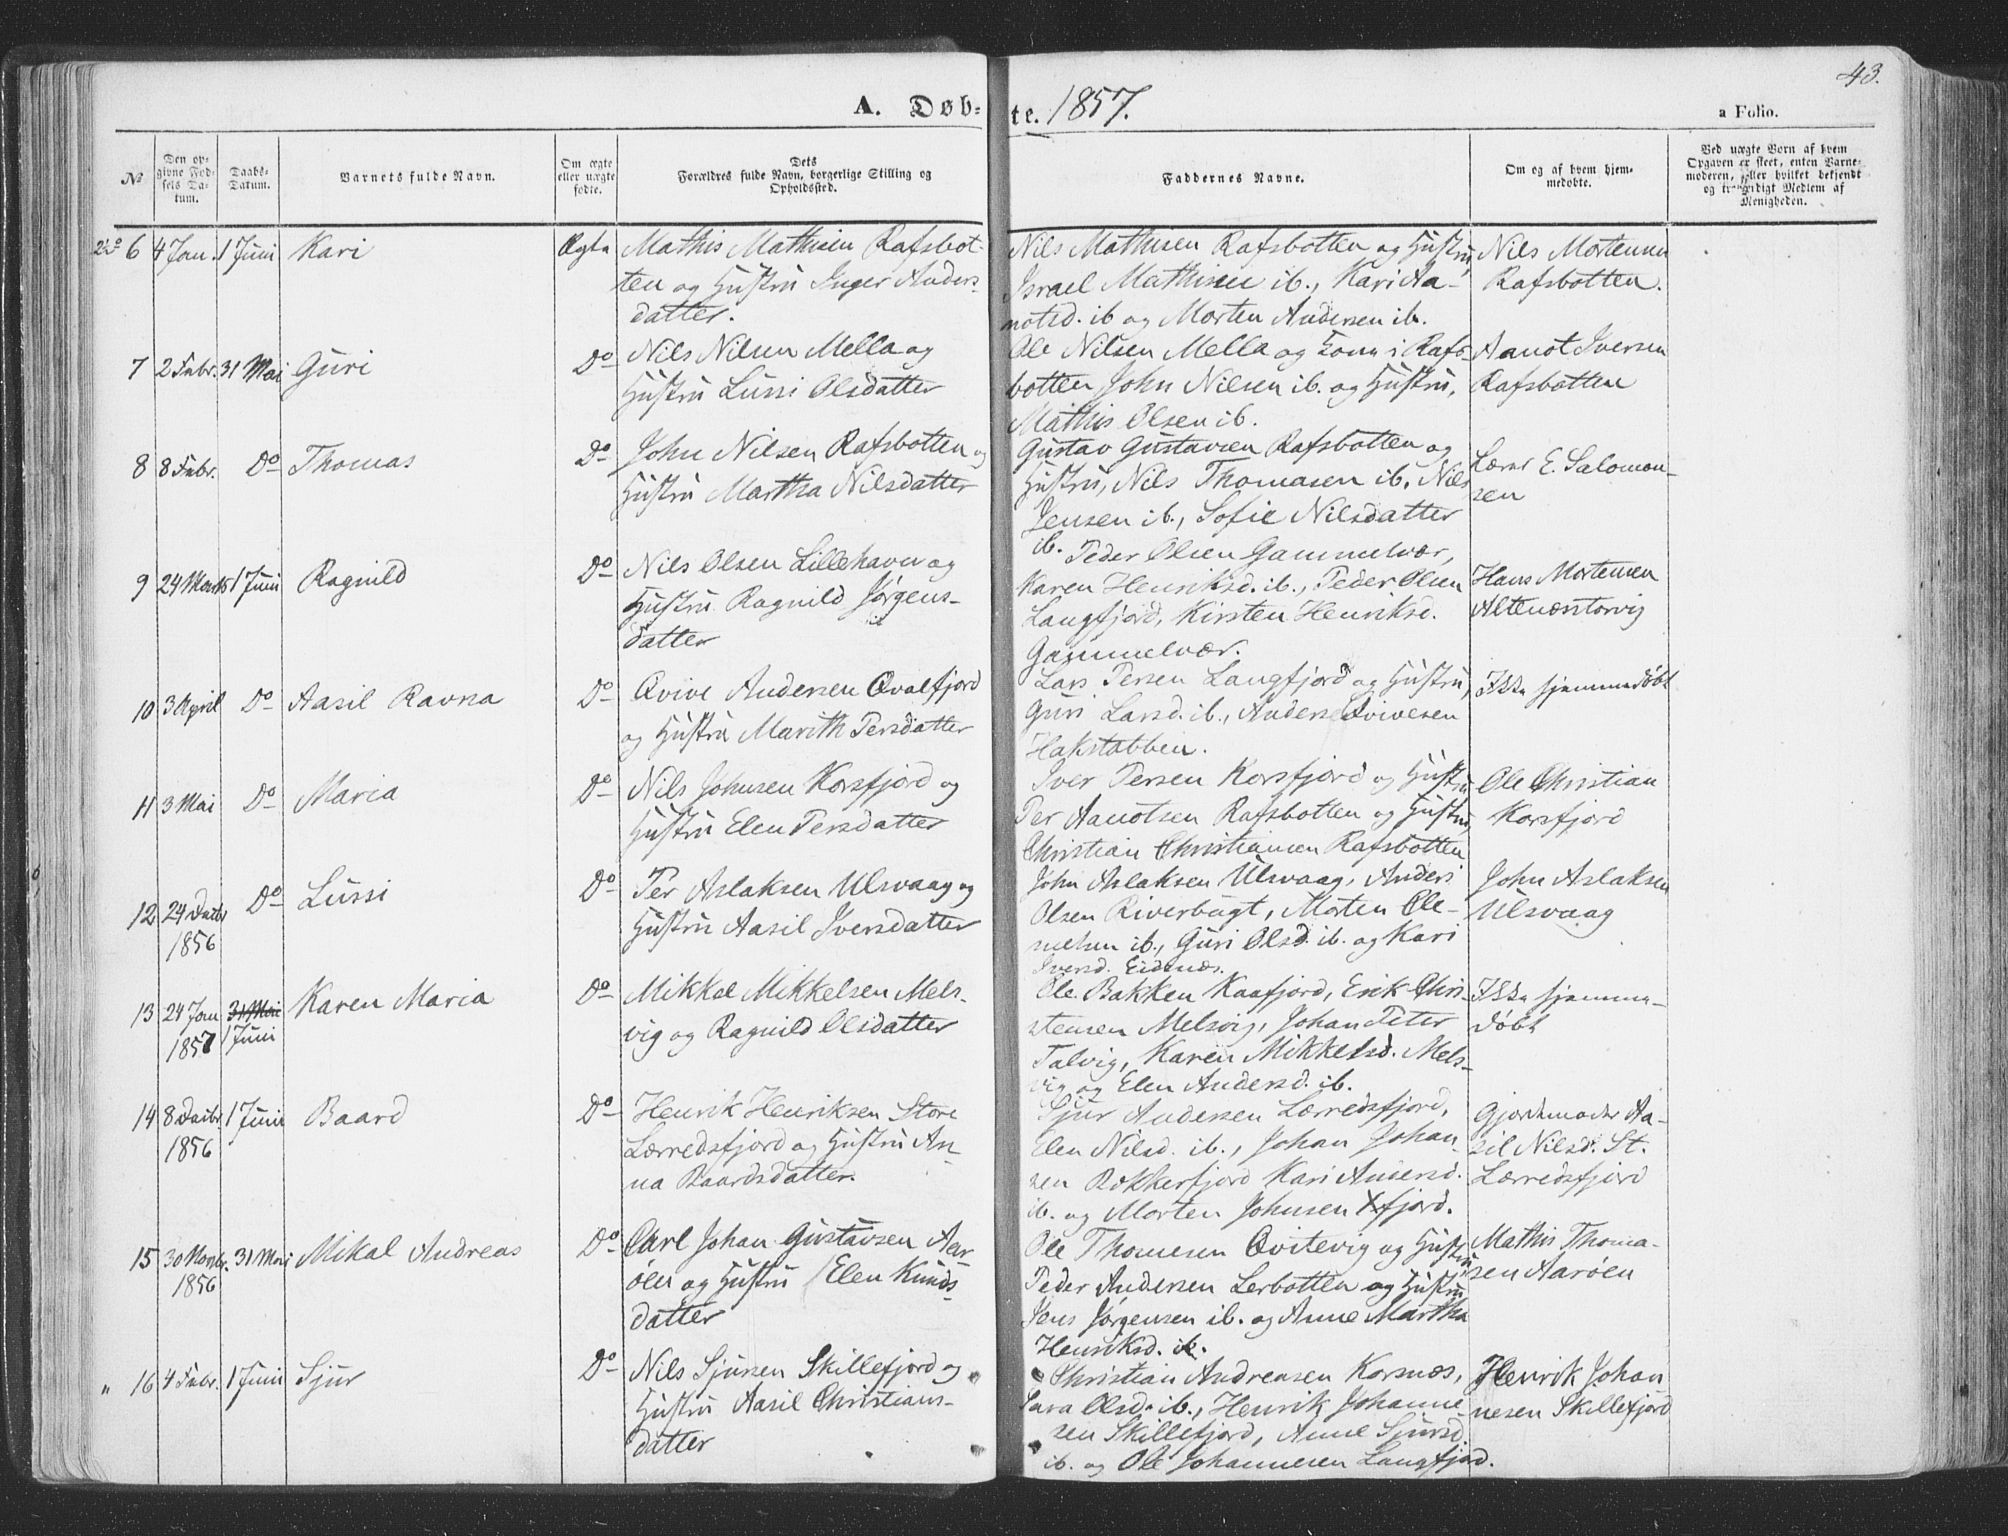 43.
A. Døb-
te. 1857.
a Folio.
No
Den op-
givne Fød-
sels Da-
tum.
Daabs-
Datum.
Barnets fulde Navn.
Om ægte
eller uægte
fødte.
Dets
Forældres fulde Navn, borgerlige Stilling og
Opholdssted.
Faddernes Navne.
Om og af hvem hjem-
medøbte.
Ved uægte Børn af hvem
Opgaven er skeet, enten Barne-
moderen, eller hvilket bekjendt
og troværdigt Medlem af
Menigheden.
6 4 Jan. 1 Juni Kari Ægte
Mathis Mathisen Rafsbot-
ten og Hustru Inger Anders-
datter.
Nils Mathisen Rafsbotten og Hustru,
Israel Mathisen ib., Kari Aa-
notsd. ib og Morten Andersen ib.
Nils Mortensen
Rafsbotten.
7 2 Febr. 31 Mai Guri Do
Nils Nilsen Mella og
Hustru Lussi Olsdatter
Ole Nilsen Mella og Kone i Rafs-
botten John Nilsen ib. og Hustru,
Mathis Olsen ib.
Aanot Iversen
Rafsbotten
8 8 Febr. Do Thomas Do
John Nilsen Rafsbotten og
Hustru Martha Nilsdatter
Gustav Gustavsen Rafsbotten og
Hustru, Nils Thomasen ib. Nils
Jensen ib., Sofie Nilsdatter
ib.
Lærer E. Salomon-
sen
9 24 Marts 1 Juni Ragnild Do
Nils Olsen Lillehavn og
Hustru Ragnild Jørgens-
datter
Peder Olsen Gammelvær,
Karen Henriksd. ib., Peder Olsen
Langfjord, Kirsten Henriksd.
Gammelvær.
Hans Mortensen
Altenæstorvig
10 3 April Do Aasil Ravna Do
Qvive Andersen Qvalfjord
og Hustru Marith Persdatter
Lars Persen Langfjord og Hustru,
Guri Larsd. ib., Anders Qvivesen
Hakstabben.
Ikke hjemmedøbt
11 3 Mai Do Maria Do
Nils Johnsen Korsfjord og
Hustru Elen Persdatter
Iver Persen Korsfjord og Hustru
Per Aanotsen Rafsbotten og Hustru,
Christian Christiansen Rafsbotten
Ole Christian
Korsfjord
12 24 Decbr Do Lussi Do
1856
Per Aslaksen Ulsvaag og
Hustru Aasil Iversdatter
John Aslaksen Ulsvaag, Anders
Olsen Riverbugt, Morten Cle-
metsen ib., Guri Olsd. ib. og Kari
Iversd. Eidsnæs.
John Aslaksen
Ulsvaag
13 24 Jan 31 Mai Karen Maria Do
1857 1 Juni
Mikkel Mikkelsen Mels-
vig og Ragnild Olsdatter
Ole Bakken Kaafjord, Erik Chri-
stensen Melsvig, Johan Peter
Talvig, Karen Mikkelsd. Mels-
vig og Elen Andersd. ib.
Ikke hjemme-
døbt
14 8 Decbr 1 Juni Baard Do
1856
Henrik Henriksen Store
Lærredsfjord og Hustru An-
na Baardsdatter.
Sjur Andersen Lærredsfjord,
Elen Nilsd. ib., Johan Johan-
sen Rokkerfjord Kari Andersd.
ib. og Morten Johnsen Xfjord.
Gjordemoder Aa-
sil Nilsd. St.
Lærredsfjord
15 30 Novbr. 31 Mai Mikal Andreas Do
1856
Carl Johan Gustavsen Aar-
öen og Hustru Elen Knuds-
datter
Ole Thomesen Qvitevig og Hustru
Peder Andersen Lerbotten og Hustru
Jens Jørgensen ib. og Anne Martha
Henriksd. ib.
Mathis Thoma-
sen Aarøen
" 16 4 Febr. 1 Juni Sjur Do
Nils Sjursen Skillefjord og
Hustru Aasil Christians-
datter
Christian Andreasen Korsnæs,
Sara Olsd. ib., Henrik Johanne-
sen Skillefjord, Anne Sjursd.
ib. og Ole Johannesen Langfjord.
Henrik Johan
nesen Skillefjord